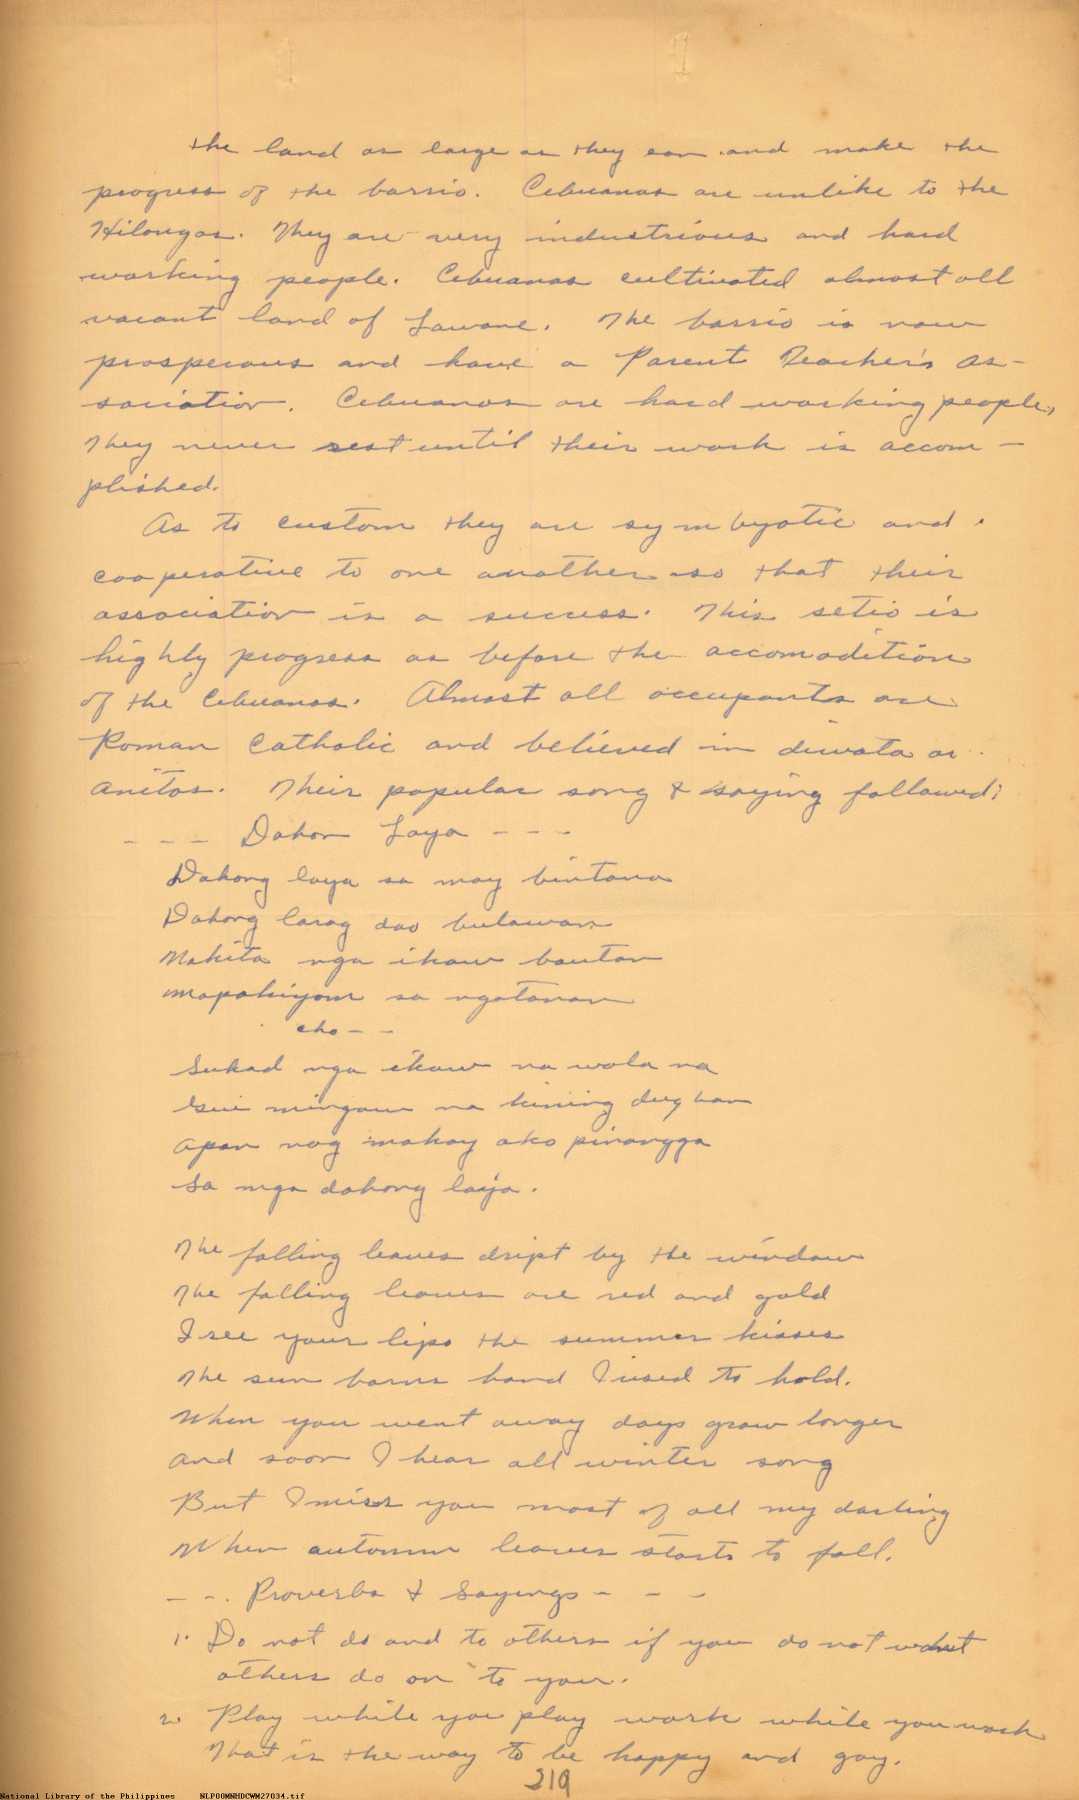 the land as large as they can and make the
progress of the barrio. Cebuanos are unlike to the
Hilongos. They are very industrious and hard
working people. Cebuanos cultivated almost all
vacant land of Lawane. The barrio is now
prosperous and have a Parent Teacher's As-
sociation. Cebuanos are hard working people,
They never rest until their work is accom-
plished.
As to custom they are symbyotic and
cooperative to one another so that their
association is a success. This setio is
highly progress as before the accomodition
of the Cebuanos. Almost all occupants are
Roman Catholic and believed in diwata or
anitos. Their popular song & saying followed:
--- Dahon Laya ---
Dahong laya sa may bintana
Dahong larag dao bulawan
Makita nga ikaw bautan
mapahiyom sa ngatanan
cho--
Sukad nga ikaw na wala na
mingaw na kining dughan
apan nag mahay ako pinangga
Sa mga dahong laya.
The falling leaves dript by the window
The falling leaves are red and gold
I see your lips the summer kisses
The sun barns hand I used to hold.
When you went away days grow longer
and soon I hear all winter song
But I miss you most of all my darling
When automn leaves starts to fall.
--. Proverbs & Sayings ---
1. Do not do and to others if you do not want
others do on to you.
2. Play while you play work while you work
That is the way to be happy and gay.
219
National Library of the Philippines NLP00MNHDCWM27034.tif